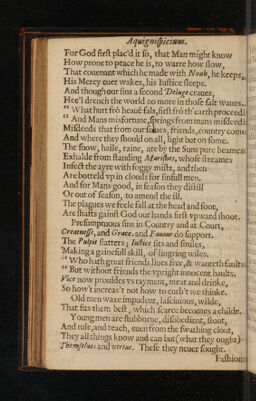 Aquignispicium.
For God first plac'd it so, that Man might know
How prone to peace he is, to warre how slow,
That couenant which he made with Noah, he keepes,
His Mercy euer wakes, his Iustice sleeps.
And though our sins a second Deluge craues,
Hee'l drench the world no more in those salt waues.
“ What hurt frō heauē fals, first frō th'earth proceeds
“ And Mans misfortune, springs from mans misdeeds
Misdeeds that from our selues, friends, country come
And where they should on all, light but on some.
The snow, haile, raine, are by the Suns pure beames
Exhalde from standing Marishes, whose streames
Infect the ayre with foggy mists, and then
Are botteld vp in clouds for sinfull men,
And for Mans good, in season they distill
Or out of season, to amend the ill.
The plagues we feele fall at the head and foot,
Are shafts gainst God our hands first vpward shoot.
Presumptuous sins in Country and at Court,
Greatnesse, and Grace, and Fauour do support.
The Pulpit flatters; Iustice sits and smiles,
Making a gainefull skill, of lingring wiles.
“ Who hath great friends liues free, & wanteth faults
“ But without friends the vpright innocent haults.
Vice now prouides vs rayment, meat and drinke,
So how't increas't not how to curb't we thinke.
Old men waxe impudent, lasciuious, wilde,
That fits them best, which scarce becomes a childe.
Young men are stubborne, disobedient, stout,
And rule, and teach, euen from the swathing clout,
They all things know and can but (what they ought)
Themselues and vertue. These they neuer sought.
Fashion